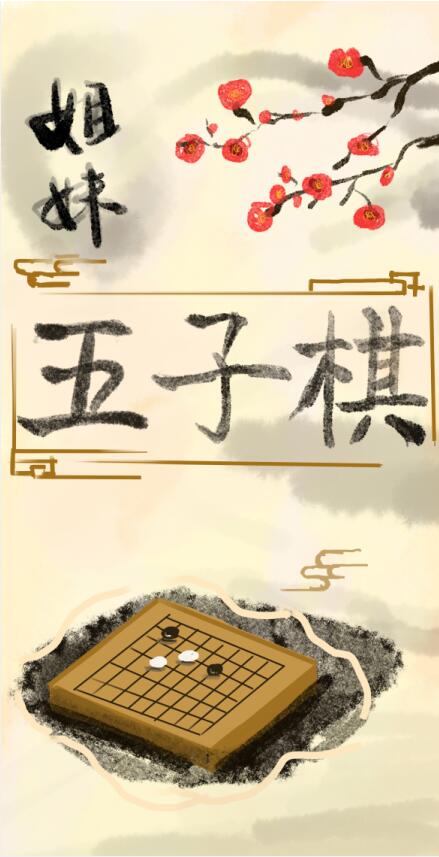 姐妹
五子棋